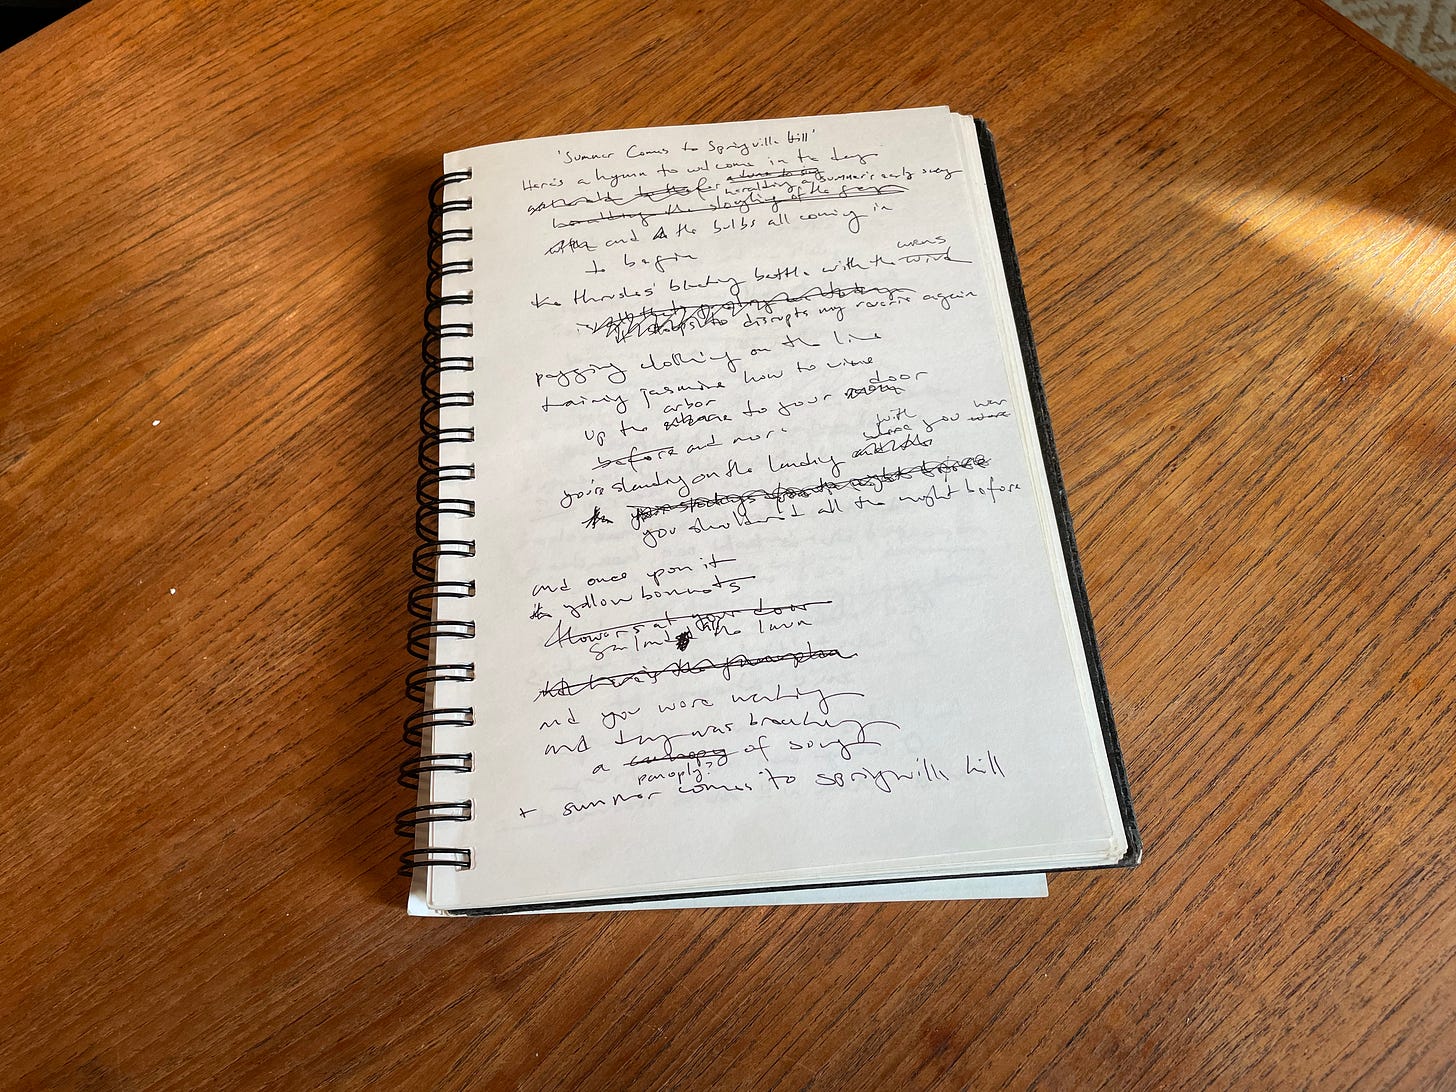 'Summer Comes to Springville Hill'
Here's a hymn to welcome in the day
for heralding a summer's early sway
heralding the of the
and the bulbs all coming in
to begin
the thrushes' bleating battle with the wrens
wind
disrupts my reverie again
pegging clothing on the line
training jasmine how to vine
up the arbor to your door
before and more
you're standing on the landing with
where you wore war
you shouldered all the night before
and once upon it
yellow bonnets
flowers at your door
garland the lawn
and you were waking
and day was breaking
a canopy of song
panoply?
+ summer comes to springville hill